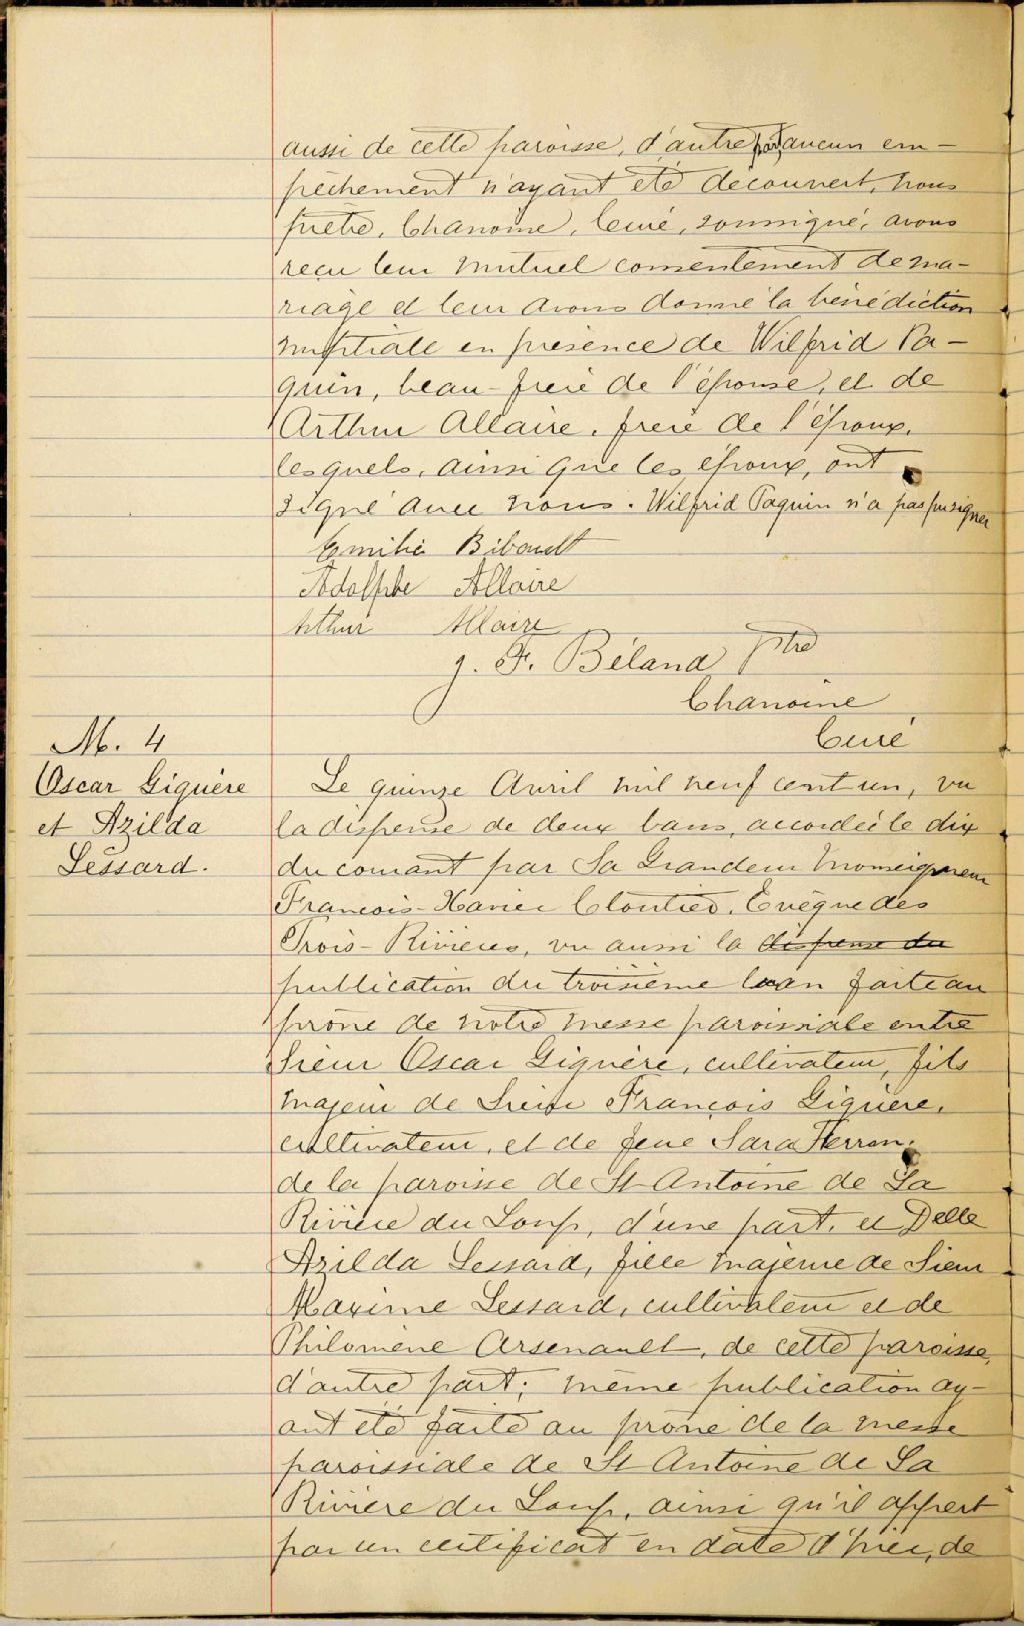 aussi de cette paroisse, d'autre part aucun em-
pêchement n'ayant été découvert, nous
prêtre, Chanoine, Curé, soussigné, avons
reçu leur mutuel consentement de ma-
riage et leur avons donné la bénédiction
nuptiale en présence de Wilfrid Pa-
quin, beau-frère de l'épouse, et de
Arthur Allaire, frère de l'époux,
lesquels, ainsi que les époux, ont
signé avec nous. Wilfrid Paquin n'a pas pu signer
Emilie Bibault
Adolphe Allaire
Arthur Allaire
J. F. Béland Ptre
Chanoine
Curé
M. 4
Oscar Giguère
et Azilda
Lessard.
Le quinze Avril mil neuf cent un, vu
la dispense de deux bans, accordée le dix
du courant par Sa Grandeur Monseigneur
François-Xavier Cloutier, Evêque des
Trois-Rivières, vu aussi la dispense du
publication du troisième ban faite au
prône de notre messe paroissiale entre
Sieur Oscar Giguère, cultivateur, fils
majeur de Sieur François Giguère,
cultivateur, et de feue Sara Ferron,
de la paroisse de St Antoine de La
Rivière du Loup, d'une part, et Delle
Azilda Lessard, fille majeure de Sieur
Maxime Lessard, cultivateur et de
Philomène Arsenault, de cette paroisse,
d'autre part; même publication ay-
ant été faite au prône de la messe
paroissiale de St Antoine de La
Rivière du Loup, ainsi qu'il appert
par un certificat en date d'hier, de